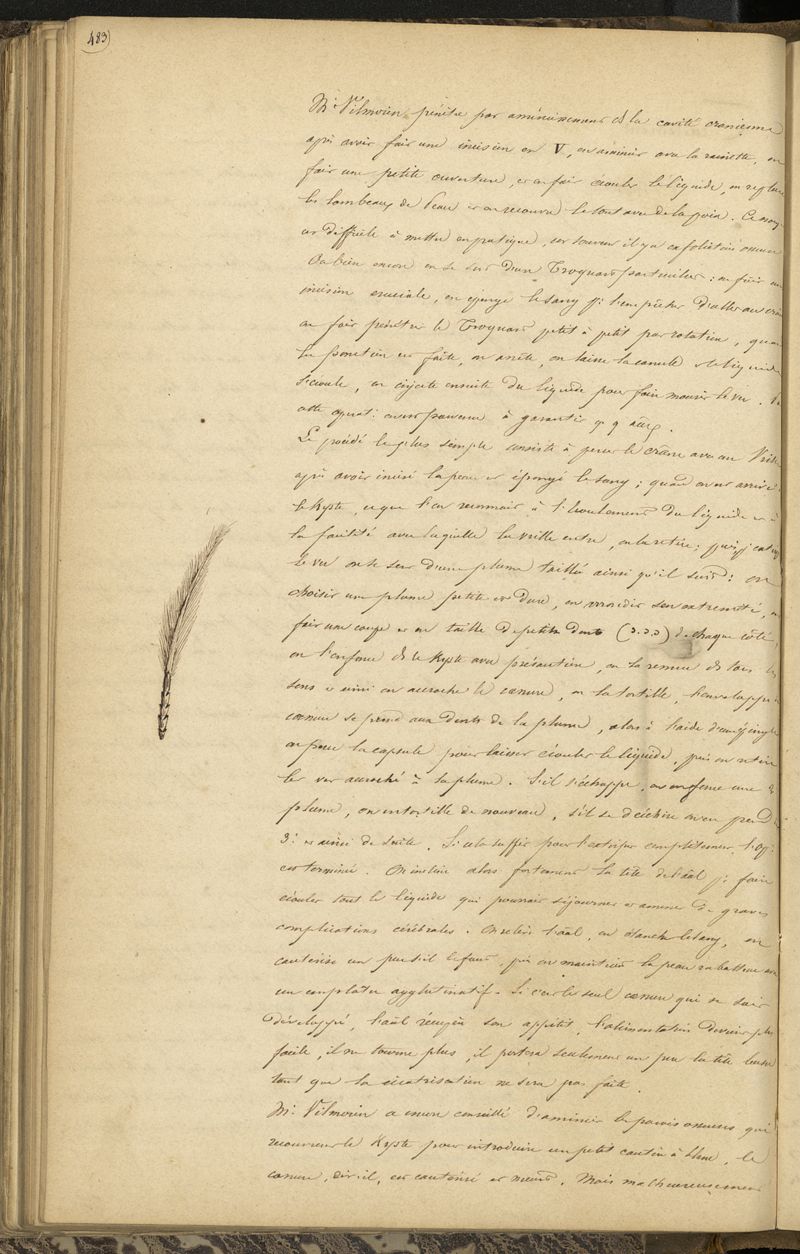 483
Mr Vilmorin pénètre par amincissement ds la cavité cranienne
après avoir fait une incision en V, on amincit avec la rainette, on
fait une petite ouverture, et on fait écouler le liquide, on replace
les lambeaux de peau et on recouvre le tout avec de la poix. Ce moy
est difficile à mettre en pratique, car souvent il y a exfoliation osseuse
Ou bien encore on se sert d'un Troquart particulier : on fait une
incision cruciale, on éponge le sang pr l'empêcher d'aller au crâne
on fait pénétrer le Troquart petit à petit par rotation, quand
la ponction est faite, on arrête, on laisse la canule et le liquide
s'écoule, on injecte ensuite du liquide pour faire mourir le ver.
cette opérat: est parvenue à garantir qq aux.
Le procédé le plus simple consiste à percer le crâne avec une Vrille
après avoir incisé la peau et épongé le sang ; quand on est arrivé
le Kyste, ce que l'on reconnait à l'écoulement du liquide et à
la facilité avec laquelle la vrille entre, on la retire ; puis pr extraire
le ver on se sert d'une plume taillée ainsi qu'il suit : on
choisit une plume petite et dure, on arrondit son extrémité, on
fait une coupe et on taille de petites dents (d.d.d) de chaque côté,
on l'enfonce ds le Kyste avec précaution, on la remue ds tous les
sens et ainsi on accroche le cœnure, on la tortille, l'enveloppe
cœnure se prend aux dents de la plume, alors à l'aide d'une épingle
on perce la capsule pour laisser écouler le liquide, puis on retire
le ver accroché à la plume. S'il s'échappe, on enfonce une 2e
plume, on entortille de nouveau, s'il se déchire on en prend
3e et ainsi de suite. Si cela suffit pour l'extirper complètement l'op:
est terminée. On incline alors fortement la tête de l'aal pr faire
écouler tout le liquide qui pourrait séjourner et amener de graves
complications cérébrales. On relève l'aal, on étanche le sang, on
cautérise un peu s'il le faut, puis on maintient la peau rabattue avec
un emplâtre agglutinatif. Si c'est le seul cœnure qui se soit
développé, l'aal récupère son appétit, l'alimentation devient plus
facile, il ne tourne plus, il portera seulement un peu la tête basse
tant que la cicatrisation ne sera pas faite.
Mr Vilmorin a encore conseillé d'amincir les parois osseuses qui
recouvrent le Kyste pour introduire un petit cautère à blanc, le
cœnure, dit-il, est cautérisé et meurt. Mais malheureusement